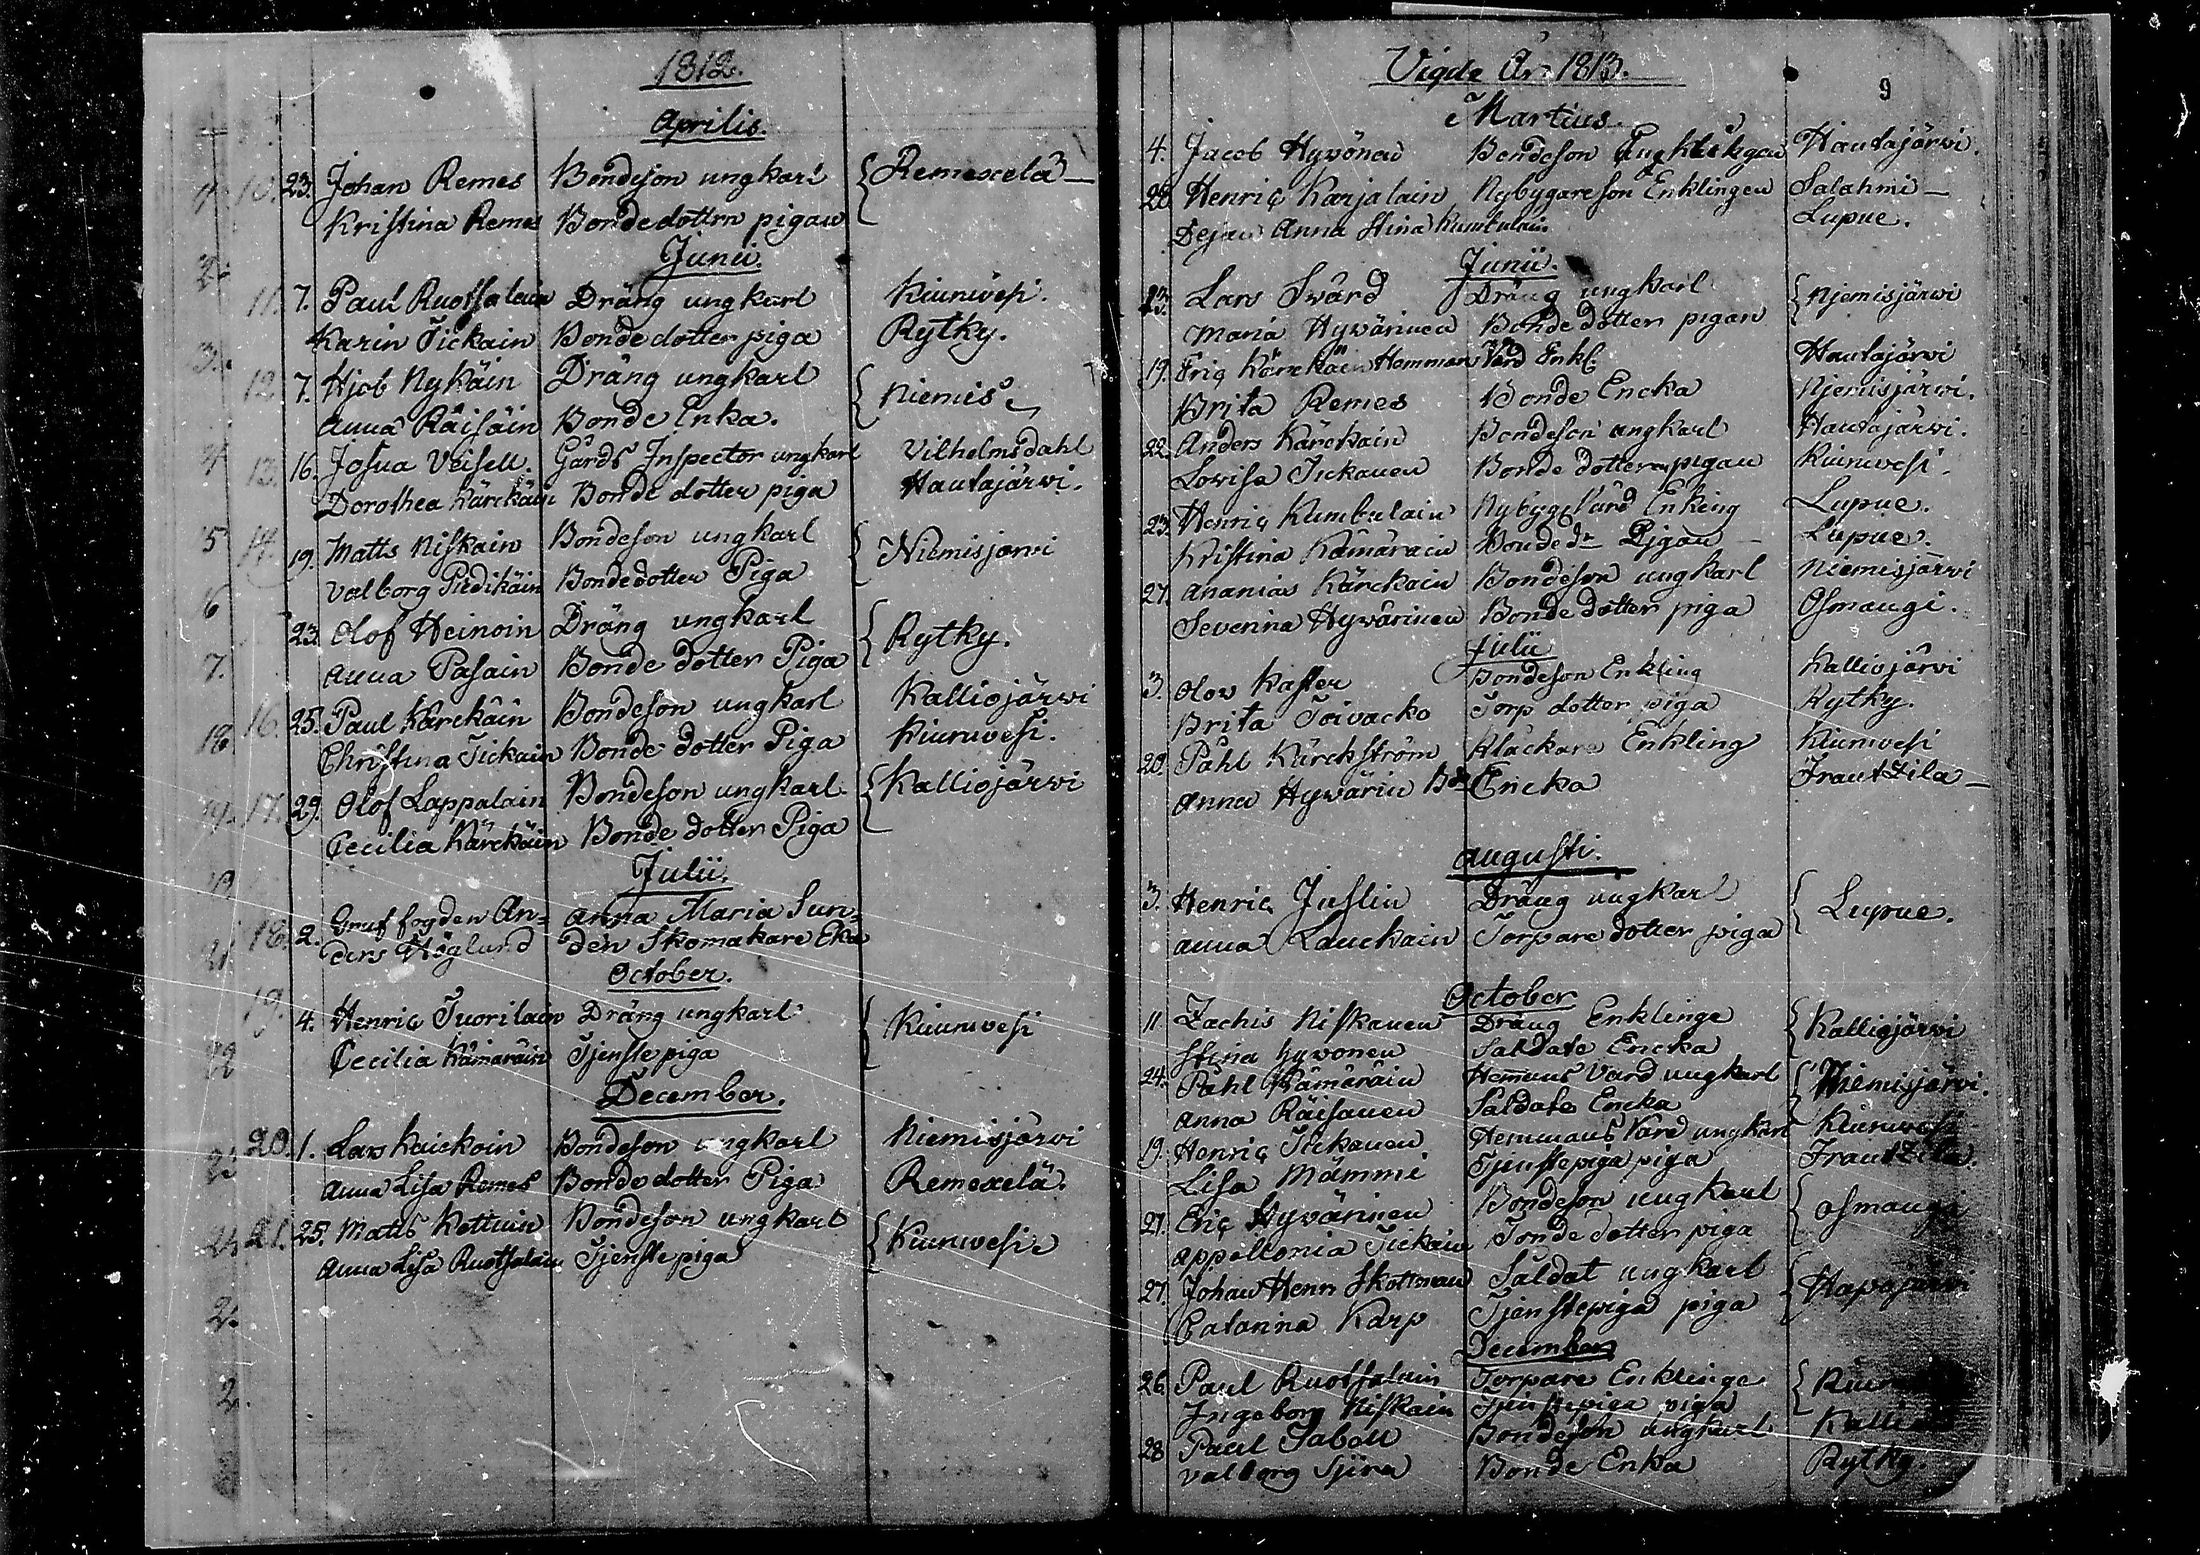 1812.
Aprilis.
10. 23. Johan Remes Bondeson ungkarl Remexelä
Kristina Remes Bondedottrn pigan
Junii.
11. 7. Paul Ruotsalain Dräng ungkarl Kiuruvesi.
Karin Tickain Bonde dotter piga Rytky.
12. 7. Hjob Nykäin Dräng ungkarl Niemis
Anna Räisäin Bonde Enka.
13. 16. Josua Veisell. Gårds Inspector ungkarl Vilhelmsdahl
Dorothea Kärckäin Bonde dotter piga Hautajärvi.
14. 19. Matts Niskain Bondeson ungkarl Niemisjärvi
Valborg Pirdikäin Bondedotter Piga
23. Olof Heinoin Dräng ungkarl Rytky.
Anna Pasain Bonde dotter Piga
16. 25. Paul Kärckäin Bondeson ungkarl Kalliojärvi
Christina Tickain Bonde dotter Piga Kiuruvesi.
17. 29. Olof Lappalain Bondeson ungkarl Kalliojärvi
Cecilia Kärckäin Bonde dotter Piga
Julii.
18. 2. Gruf fogden An= Anna Maria Sun=
ders Höglund den Skomakare Eka
October.
19. 4. Henric Tuorilain Dräng ungkarl Kiuruvesi
Cecilia Kämäräin Tjenste piga
December.
20. 1. Lars Kaickoin Bondeson ungkarl Niemisjärvi
Anna Lisa Remes Bonde dotter Piga Remexelä.
21. 25. Matts Kettuin Bondeson ungkarl Kiuruvesi
Anna Lisa Ruotsalain Tjenste piga
Vigde År 1813.
9
Martius.
4. Jacob Hyvönen Bondeson Hautajärvi.
28. Henric Karjalain Nybygareson Enklingen Salahmi
Dejan Anna Stina Kumbulain Lupue.
Junii.
13. Lars Svärd Dräng ungkarl Njemisjärvi
Maria Hyvärinen Bonde dotter pigan
19. Eric Kärckäin Hemmans Vård Enkl. Hautajärvi
Brita Remes Bonde Encka Njemisjärvi.
22. Anders Kärckäin Bondeson ungkarl Hautajärvi.
Lovisa Tickanen Bonde dotter pigan Kiuruvesi.
23. Henric Kumbulain Nybygg Vård Enkling Lupue.
Kristina Kämäräin Bonde dr Pigan Lupue.
27. Ananias Kärckäin Bondeson ungkarl Niemisjärvi
Severina Hyvärinen Bonde dotter piga Osmangi.
Julii
3. Olov Kaster Bondeson Enkling Kalliojärvi
Brita Toivacko Torp dotter piga Rytky.
20. Påhl Kärckström Klåckare Enkling Kiuruvesi
Anna Hyvärin Bde Encka Frantzila
Augusti.
3. Henric Juslin Dräng ungkarl Lupue.
Anna Lauckain Torpare dotter piga
October
11 Zachis Niskanen Dräng Enklinge Kalliojärvi
Stina Hyvönen Saldate Encka
24. Påhl Kämäräin Hemans Vård ungkarl Niemisjärvi.
Anna Räisanen Saldate Encka
19. Henric Tickanen Hemmans Vård ungkarl Kiuruvesi
Lisa Mämmi Tjenste piga piga Frantzila.
27. Eric Hyvärinen Bondeson ungkarl Osmangi
Appellonia Tickain Bonde dotter piga
27. Johan Henr Skottman Saldat ungkarl Hapajärvi
Catarina Karp Tjenstepiga piga
December
26. Paul Ruotsalain Torpare Enklinge
Ingeborg Niskain Tjenstepiga piga
28 Paul Saboll Bondeson ungkarl
Valborg Sjira Bonde Enka Rytky.